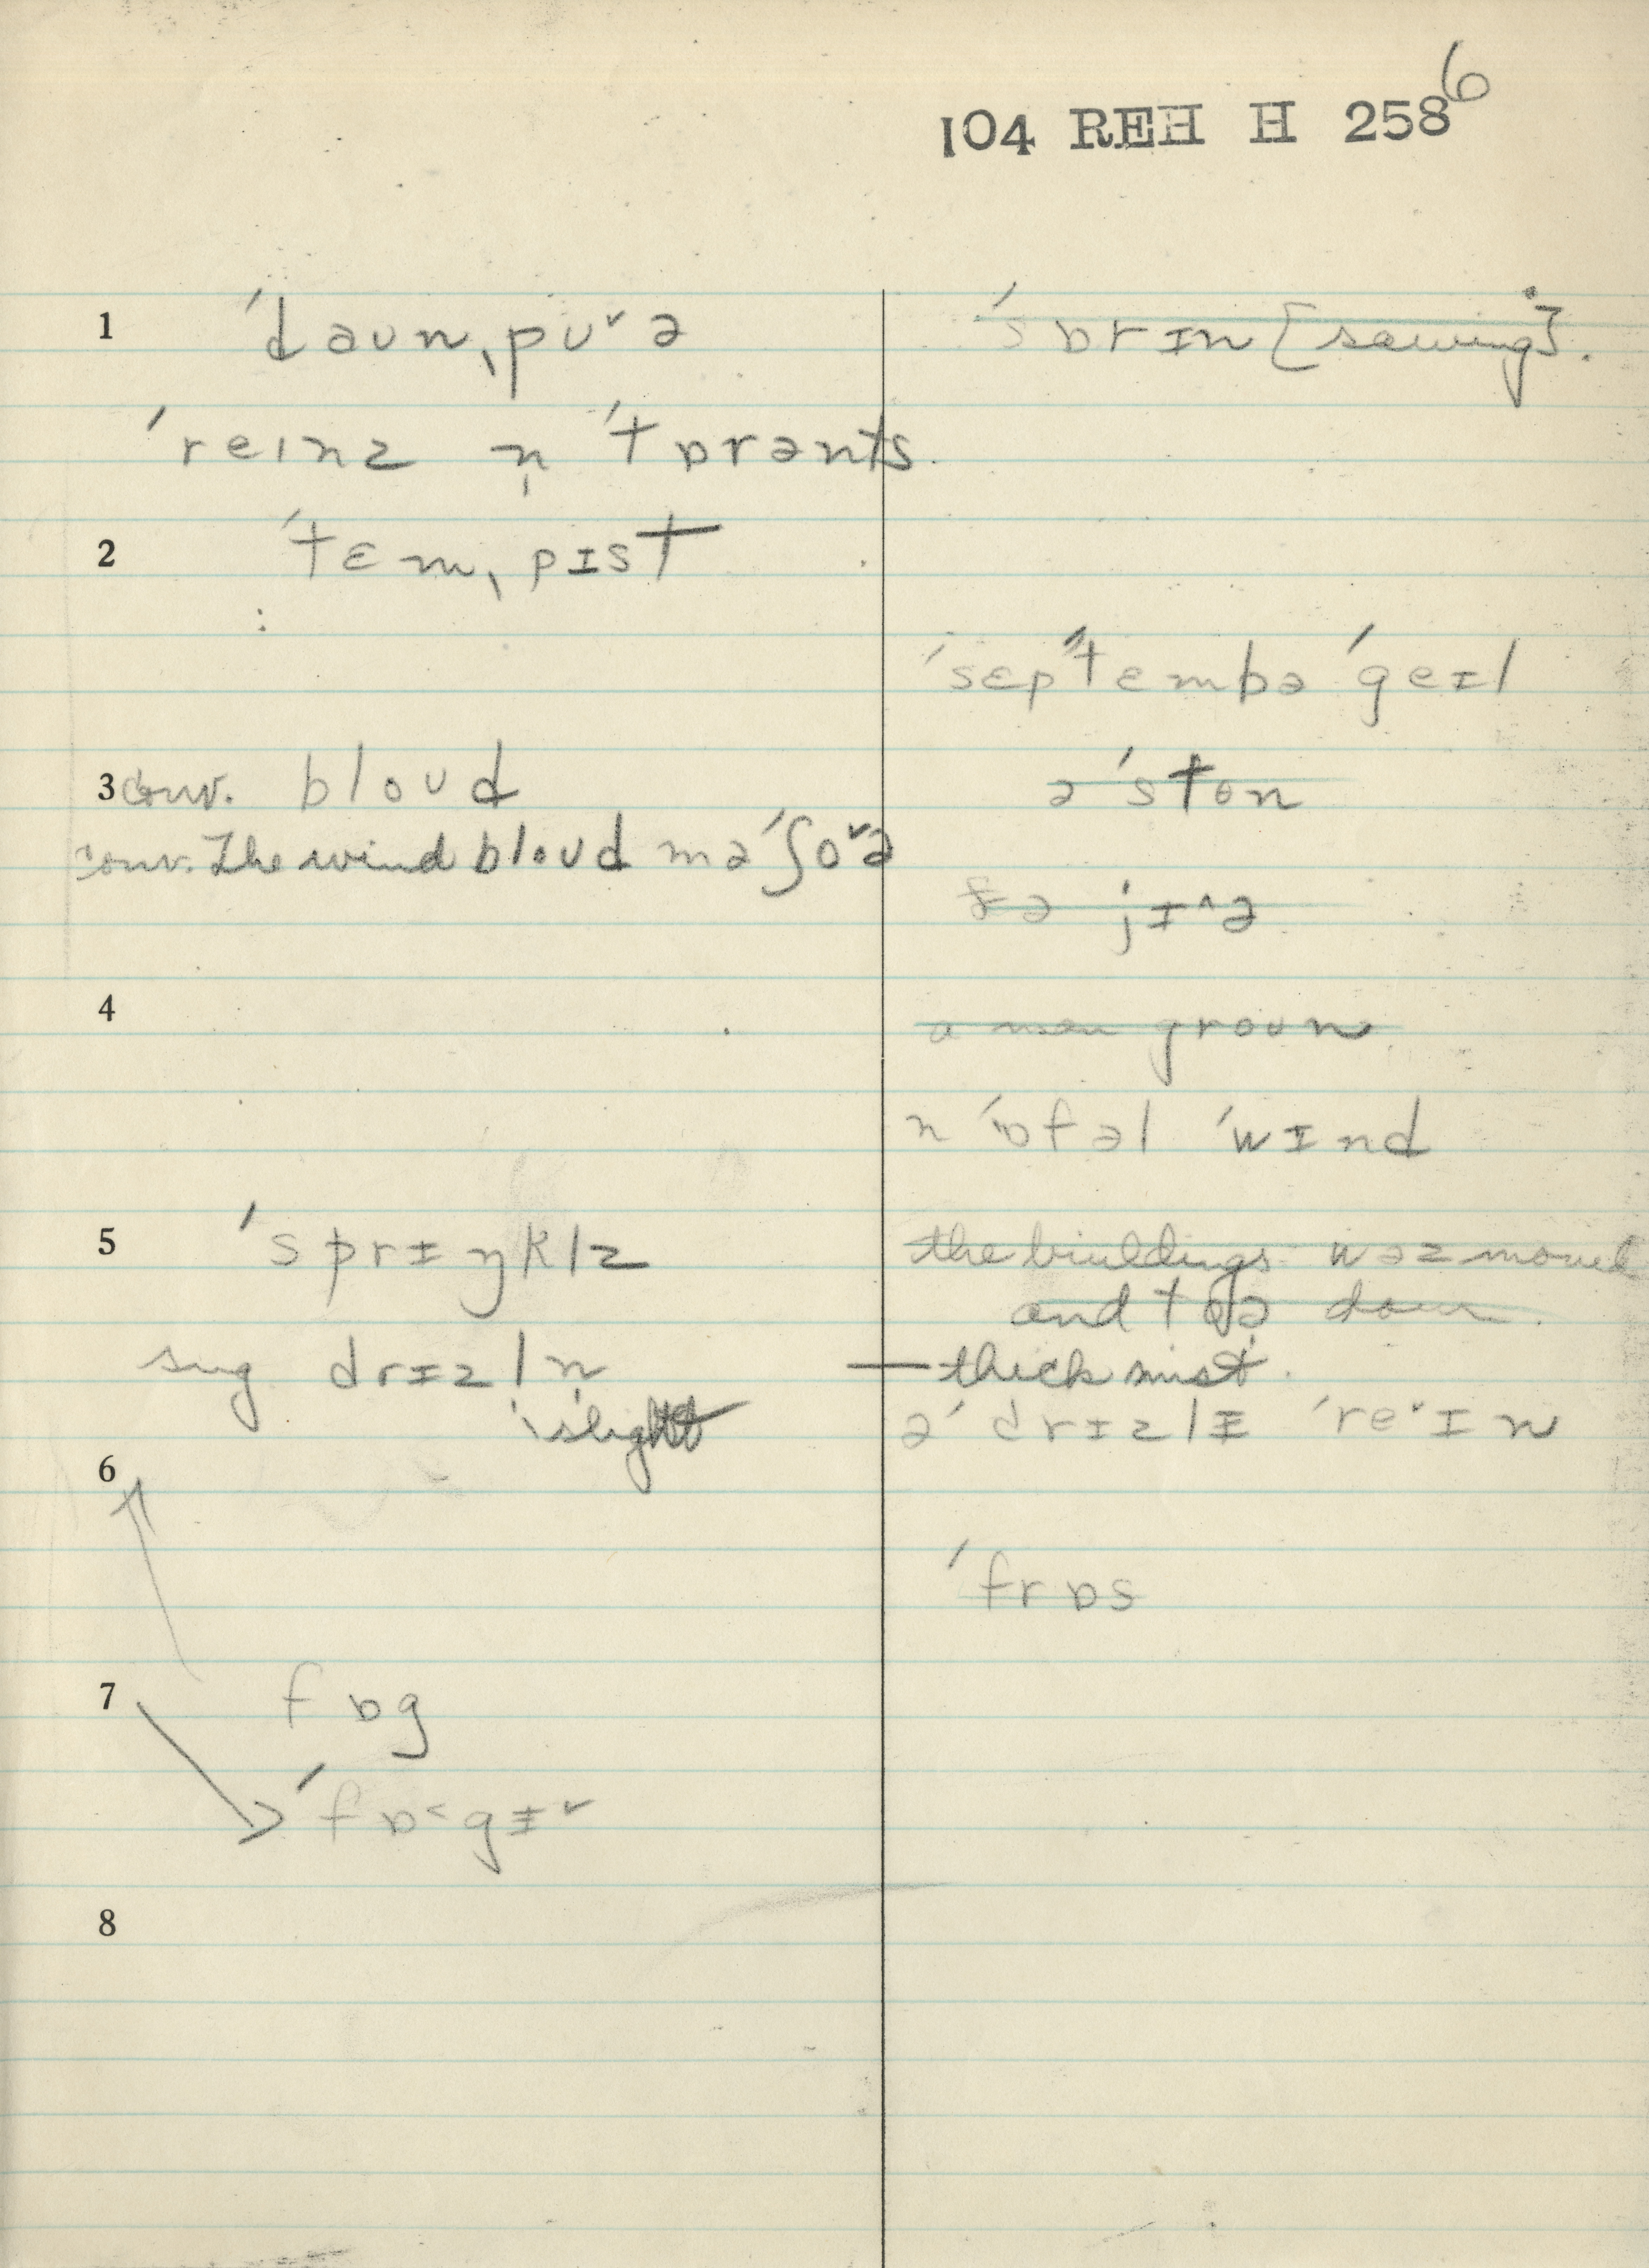 104 REH H 258 6
1 ˈdaʊnˌpʊ˅ə
ˈreɪnz n̩ ˈtɒrənts
2 ˈtɛmˌpɪst
3 conv. bloʊd
conv. The wind bloʊd məˈʃo˅ə
4
5 ˈsprɪŋklz
sug drɪzl̩n
slight
6
7 fɒg
ˈfɒ˂gɪ˅
8
ˈsɒrɪn [sawing].
ˈsɛpˈtɛmbə ˈgeɪl
əˈstɒn
fə jɪ˄ə
a groʊn
n ˈɒfəl ˈwɪnd
the buildings wəz moved
and down.
— thick mist.
əˈ drɪzlɪ ˈre·ɪn
ˈfrɒs